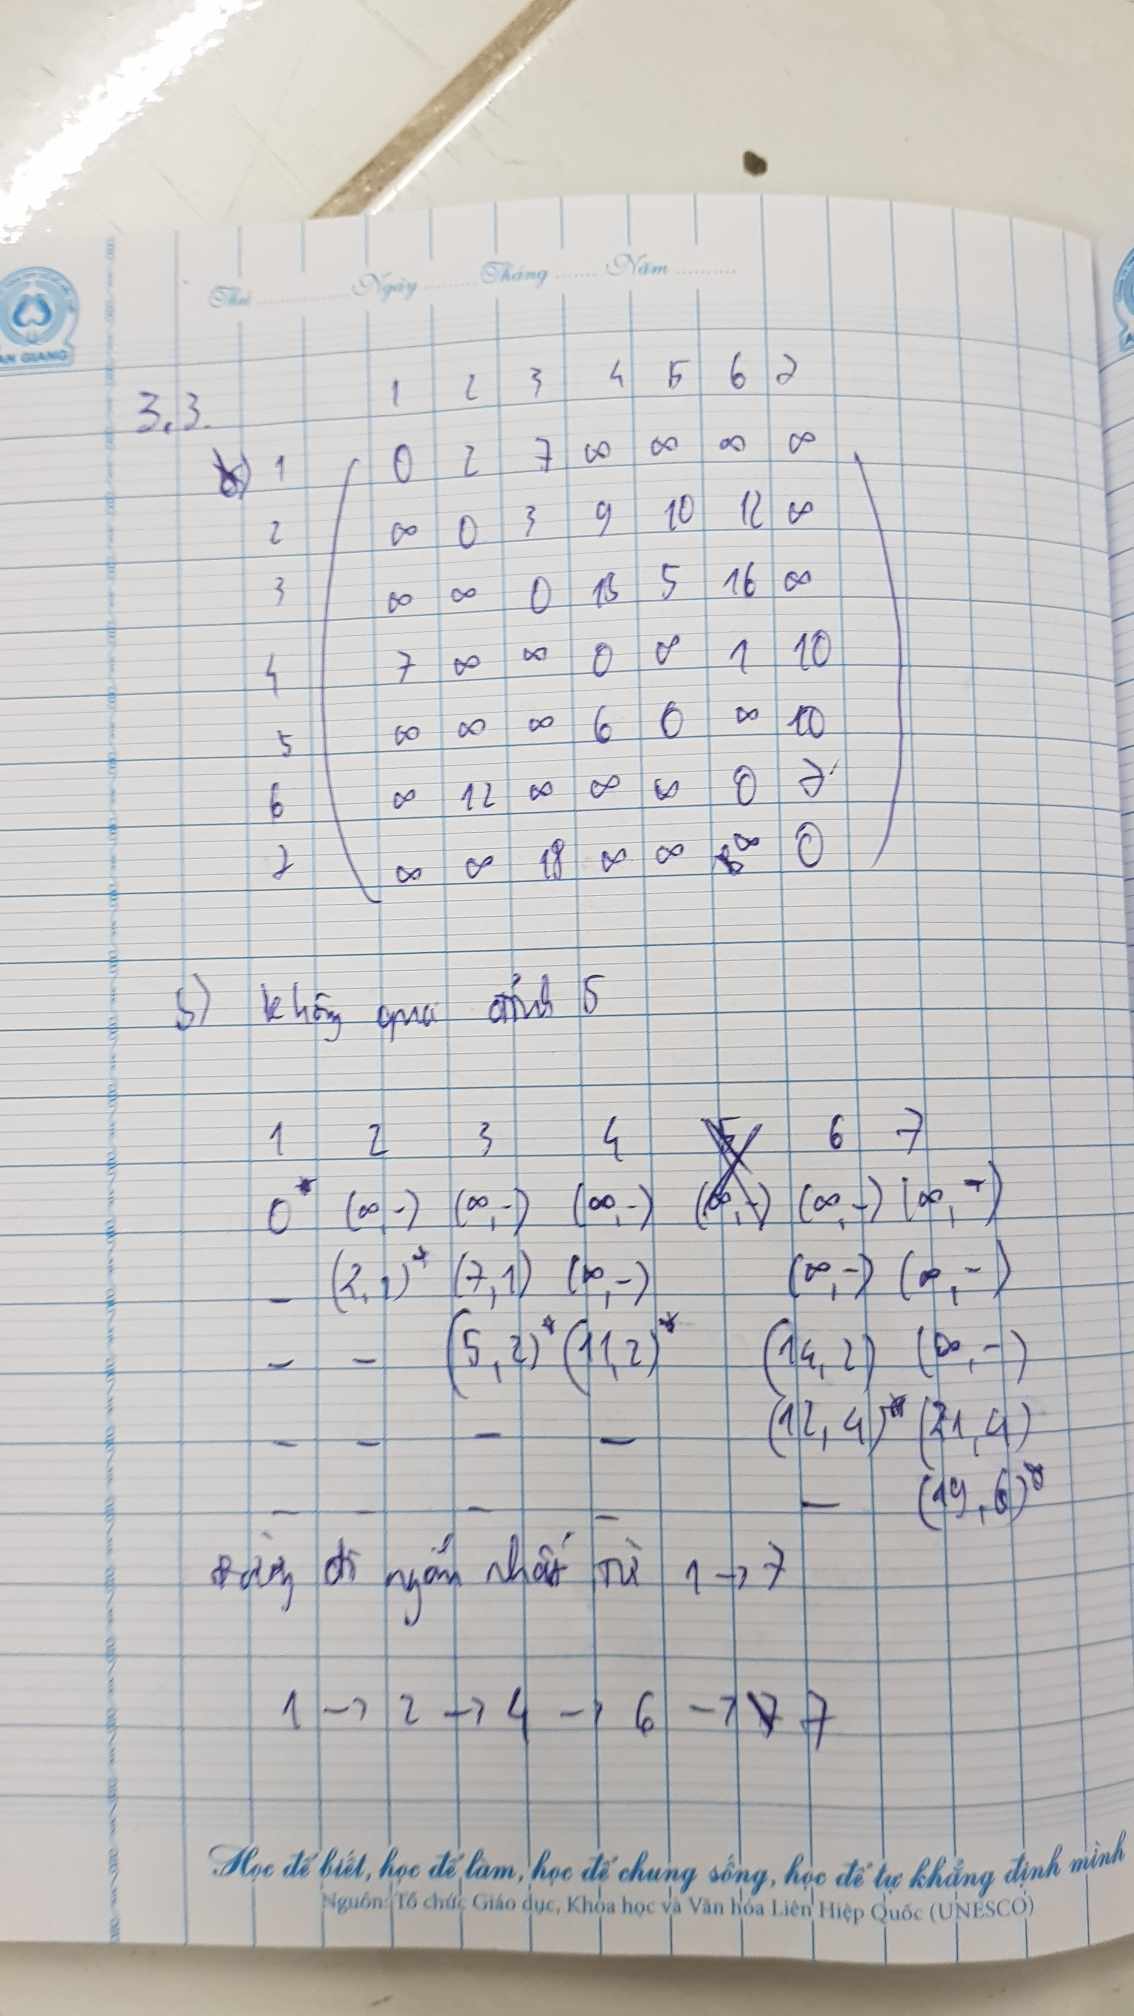 Thứ ............ Ngày ........ Tháng ....... Năm ..........
AN GIANG
3.3. 1 2 3 4 5 6 7
1 0 2 7 ∞ ∞ ∞ ∞
2 ∞ 0 3 9 10 12 ∞
3 ∞ ∞ 0 13 5 16 ∞
4 7 ∞ ∞ 0 ∞ 1 10
5 ∞ ∞ ∞ 6 0 ∞ 10
6 ∞ 12 ∞ ∞ ∞ 0 7
7 ∞ ∞ 18 ∞ ∞ ∞ 0
b) không qua đỉnh 5
1 2 3 4 5 6 7
0* (∞,-) (∞,-) (∞,-) (∞,-) (∞,-) (∞,-)
- (2,1)* (7,1) (∞,-) (∞,-) (∞,-)
- - (5,2)* (11,2)* (14,2) (∞,-)
- - - - (12,4)* (21,4)
- - - - - (19,6)*
đường đi ngắn nhất từ 1 → 7
1 → 2 → 4 → 6 → 7
Học để biết, học để làm, học để chung sống, học để tự khẳng định mình
Nguồn: Tổ chức Giáo dục, Khoa học và Văn hóa Liên Hiệp Quốc (UNESCO)